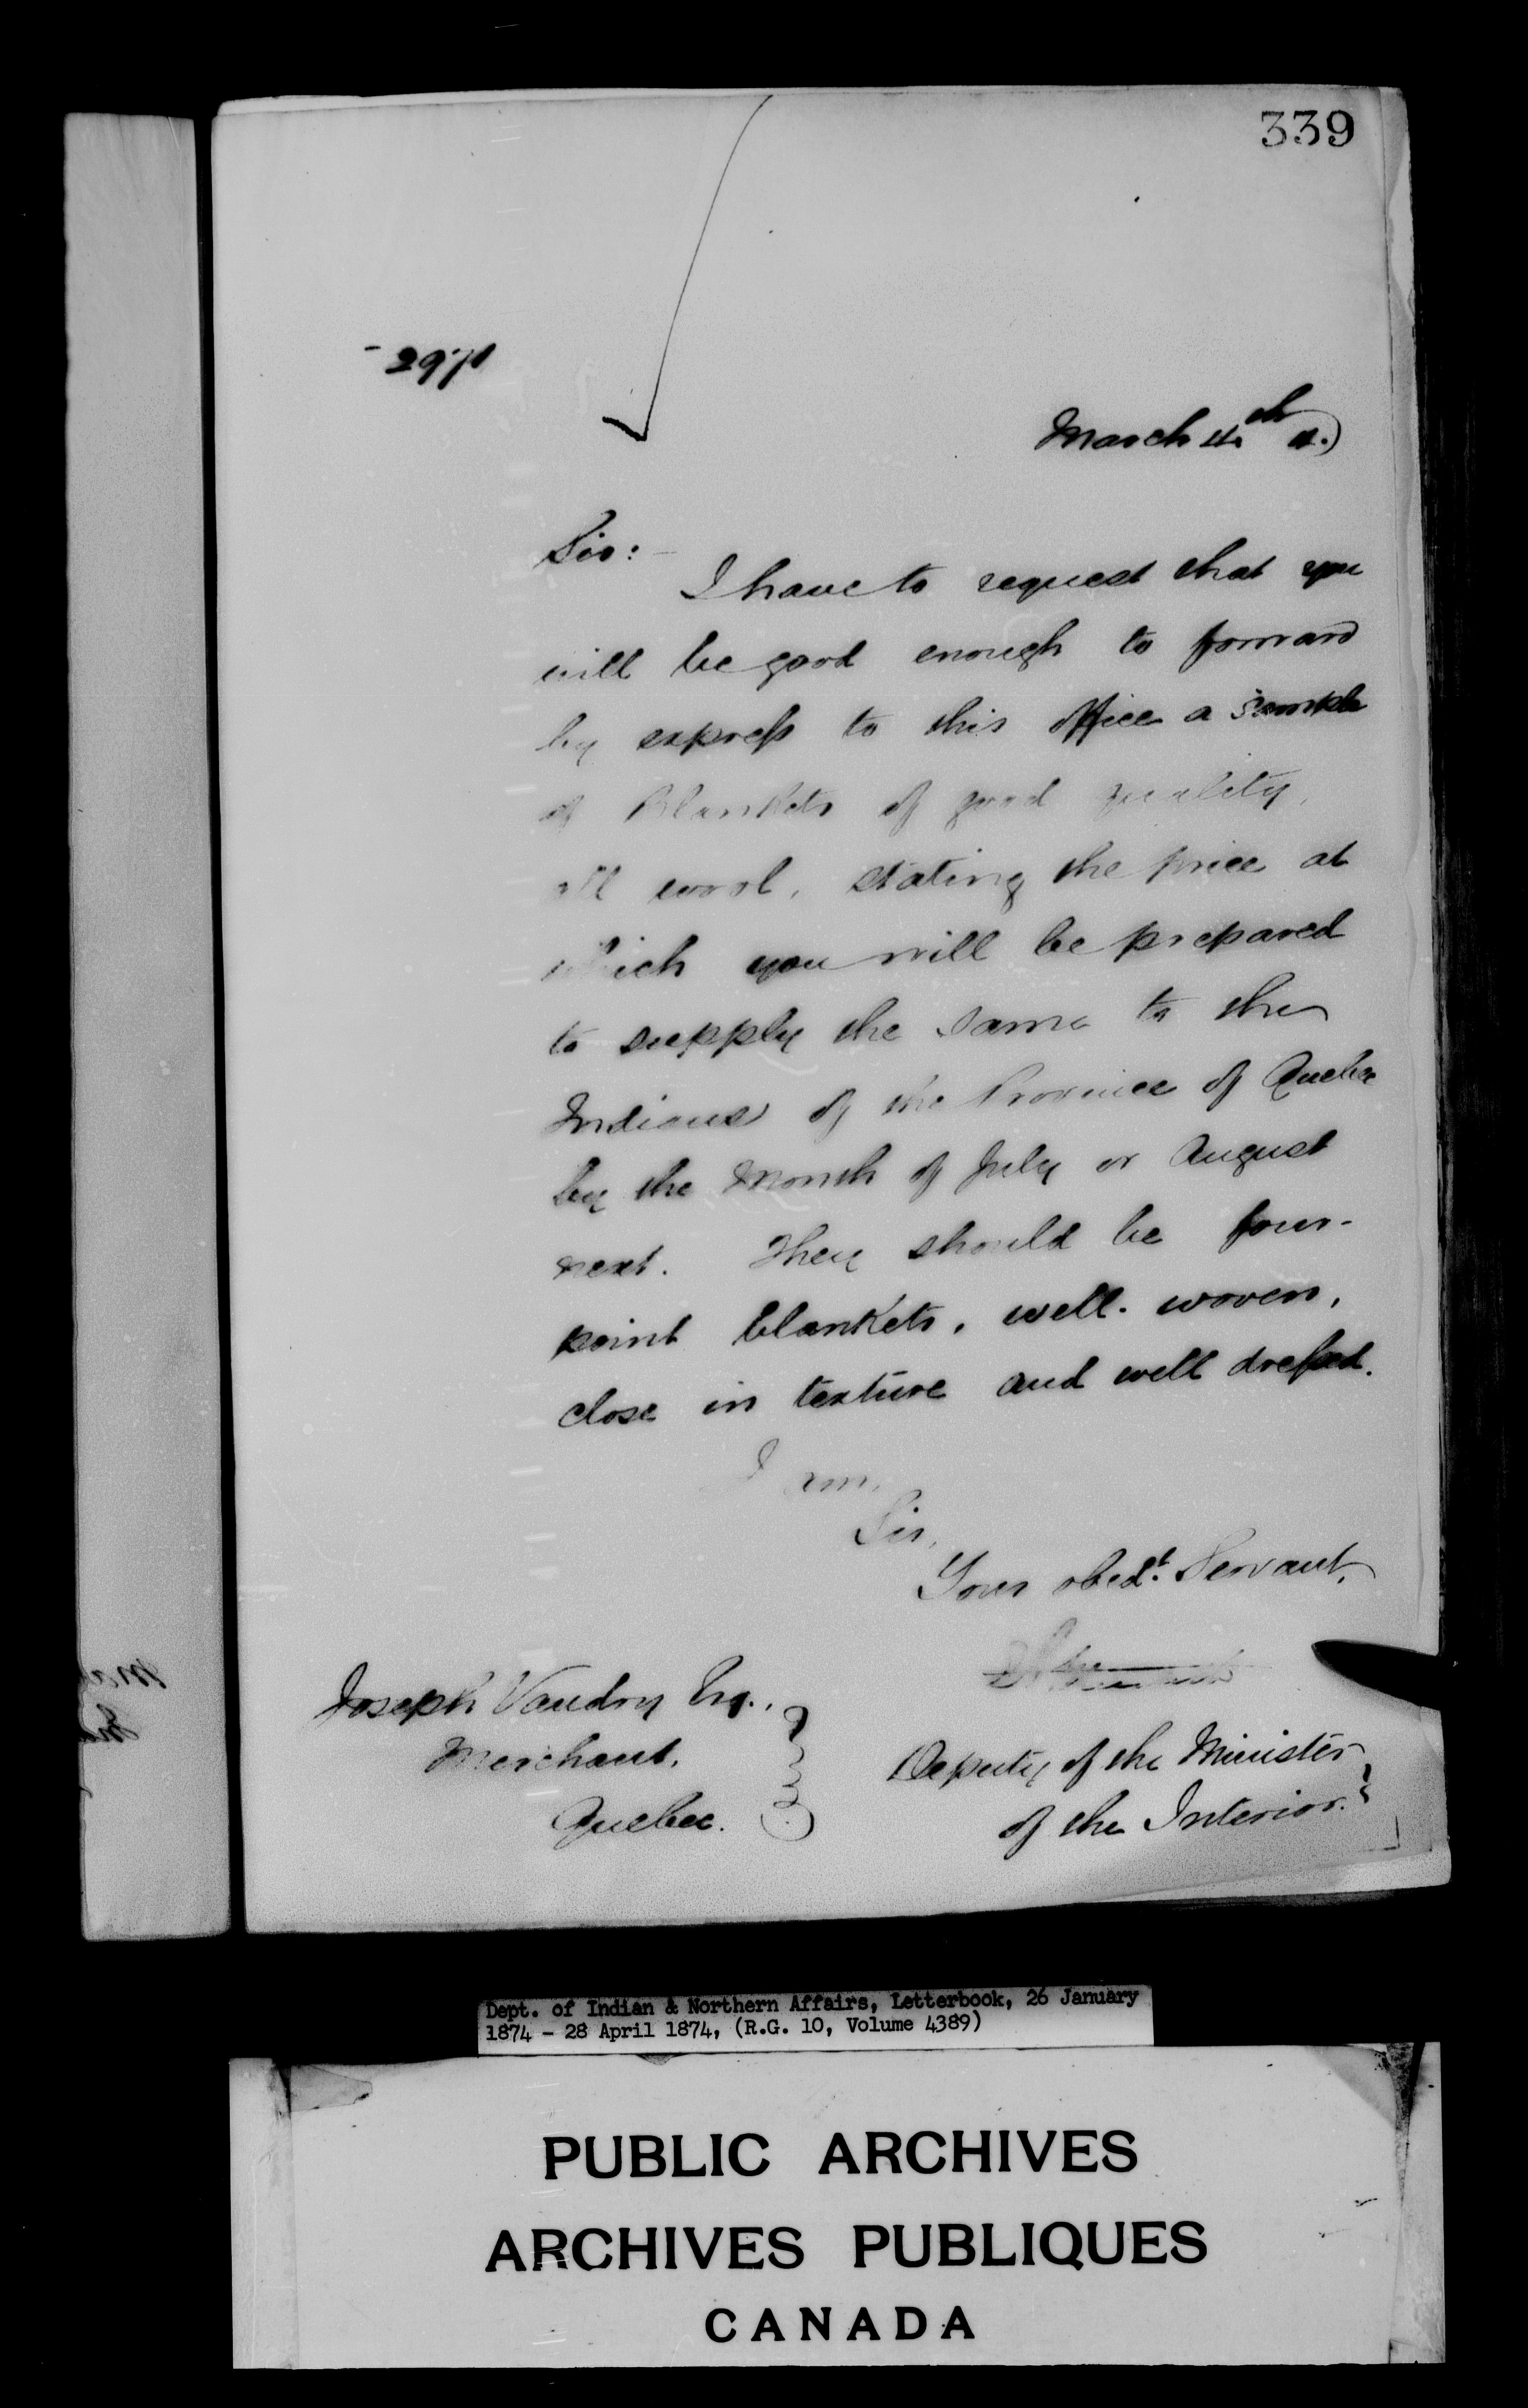 339
March 4th
Sir:
I have to request that you
will be good enough to forward
by express to this office a sample
of Blankets of good quality,
all wool, stating the price at
which you will be prepared
to supply the same to the
Indians of the Province of Quebec
by the Month of July or August
next. They should be four-
point blankets, well-woven,
close in texture and well dressed.
I am,
Sir,
Your obedt. Servant,
Joseph Vaudry Esq.,
Merchant,
Quebec.
Deputy of the Minister
of the Interior.
Dept. of Indian & Northern Affairs, Letterbook, 26 January
1874 - 28 April 1874, (R.G. 10, Volume 4389)
PUBLIC ARCHIVES
ARCHIVES PUBLIQUES
CANADA